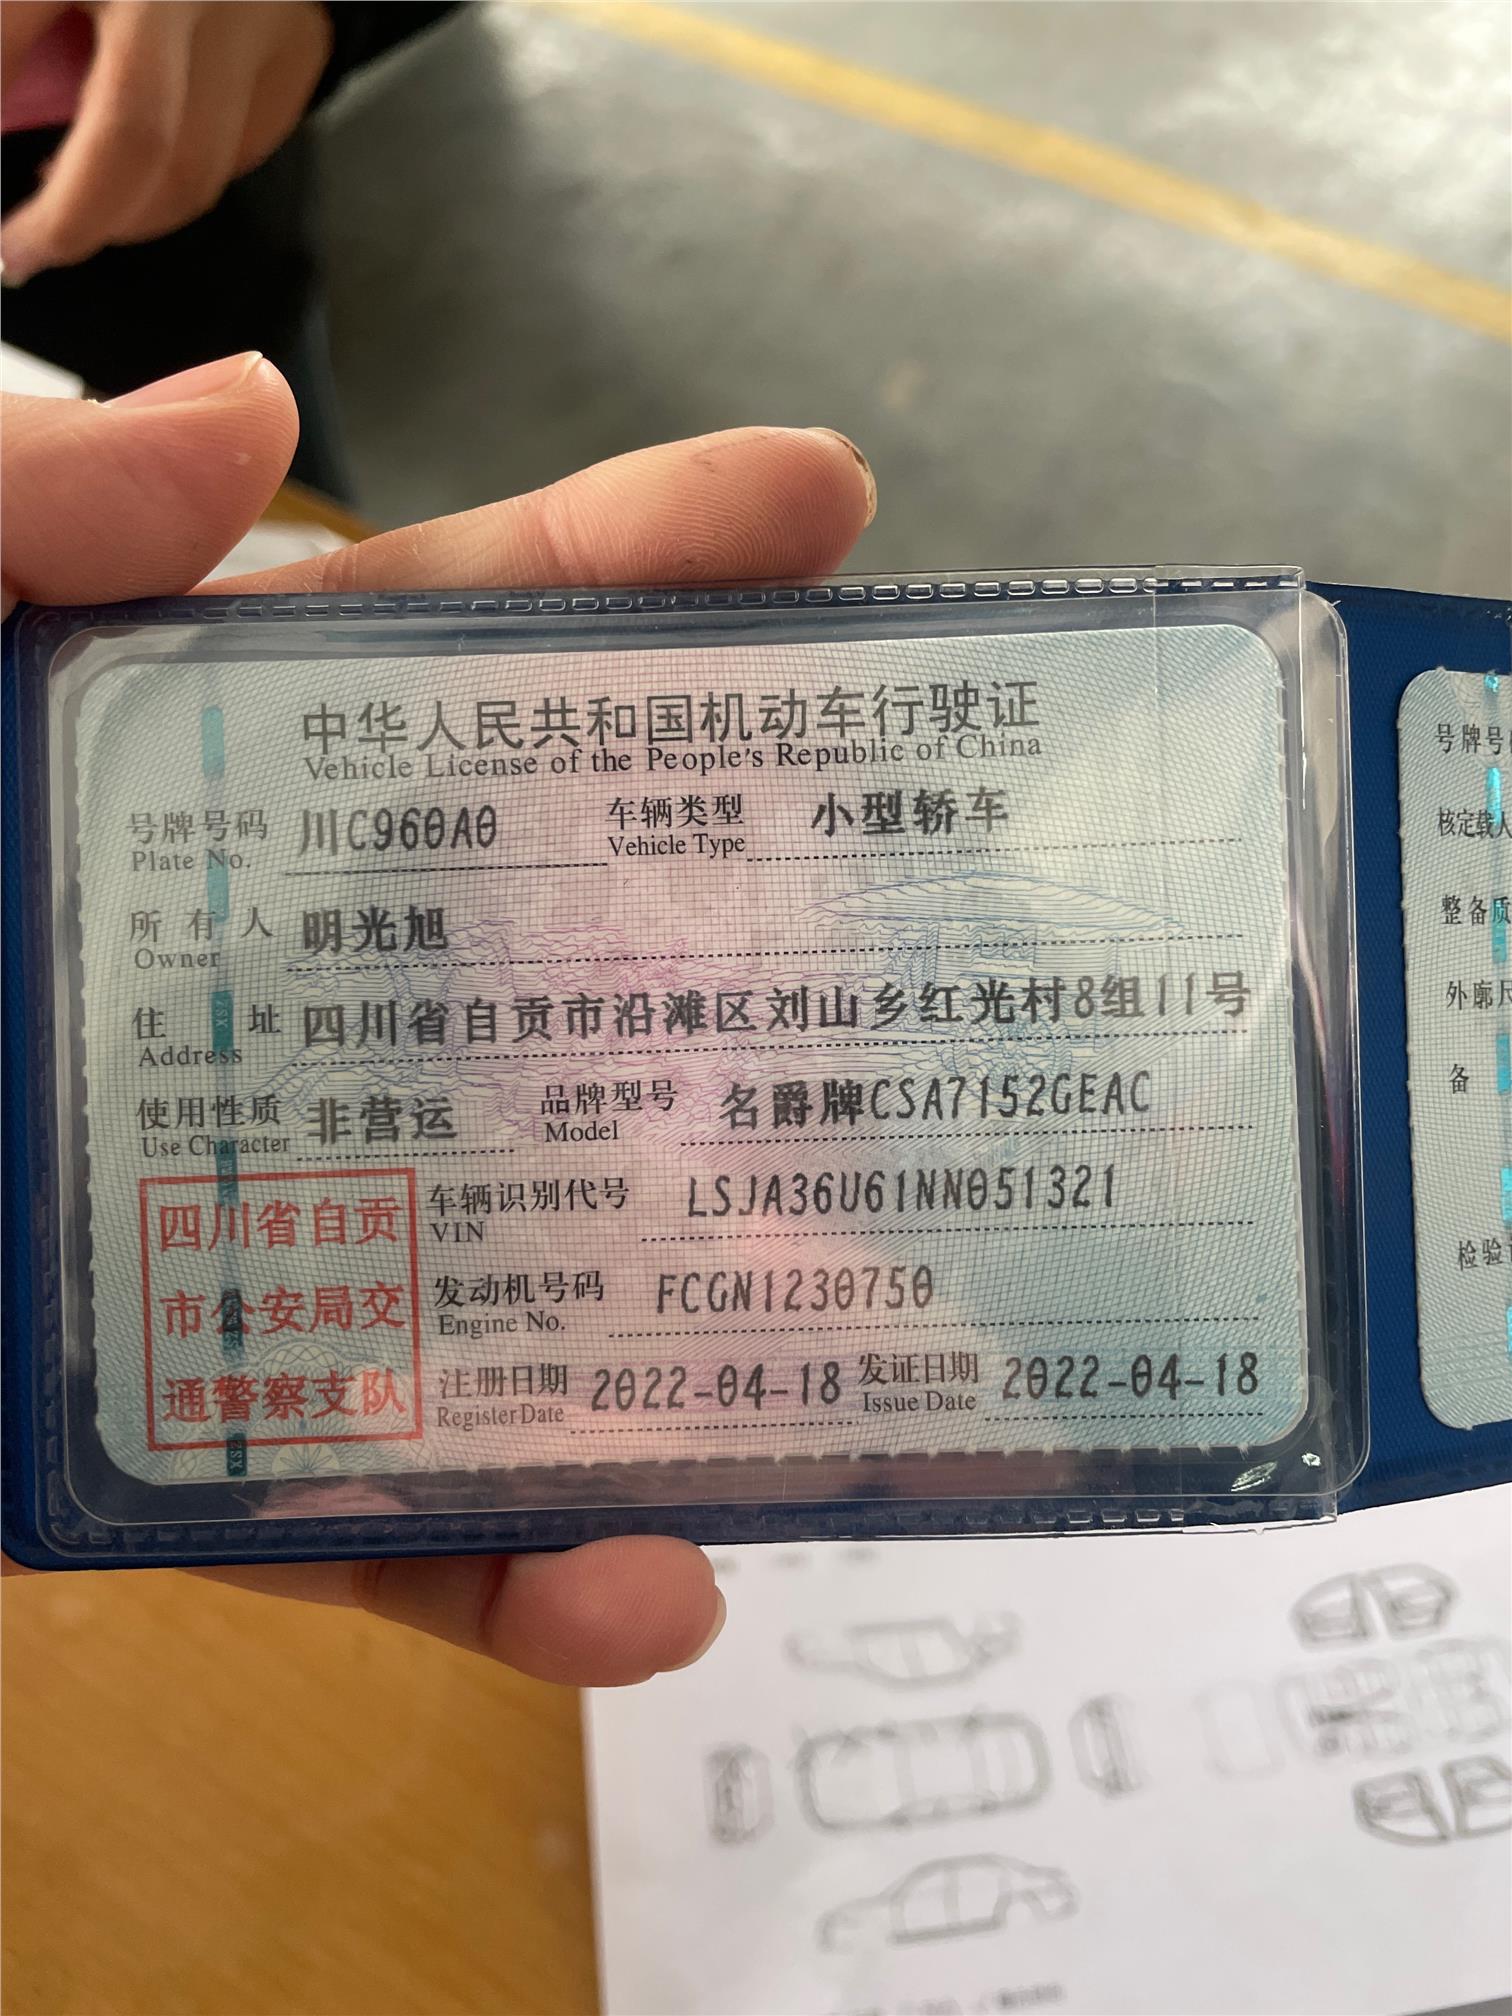 中华人民共和国机动车行驶证
Vehicle License of the People's Republic of China
号牌号码 川C960A0 车辆类型 小型轿车
Plate No. Vehicle Type
所有人 明光旭
Owner
住址 四川省自贡市沿滩区刘山乡红光村8组11号
Address
使用性质 非营运 品牌型号 名爵牌CSA7152GEAC
Use Character Model
四川省自贡
市公安局交
通警察支队
车辆识别代号 LSJA36U61NN051321
VIN
发动机号码 FCGN1230750
Engine No.
注册日期 2022-04-18 发证日期 2022-04-18
Register Date Issue Date
号牌号
核定载人
整备质
外廓尺
备
检验